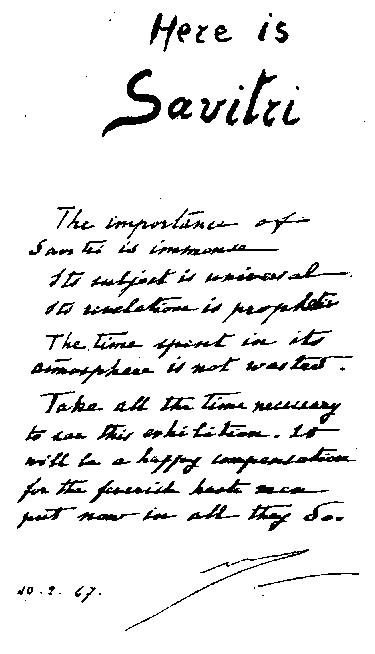 Here is
Savitri
The importance of
Savitri is immense
Its subject is universal.
Its revelation is prophetic
The time spent in its
atmosphere is not wasted.
Take all the time necessary
to see this exhibition. It
will be a happy compensation
for the feverish haste men
put now in all they do.
10.2.67.